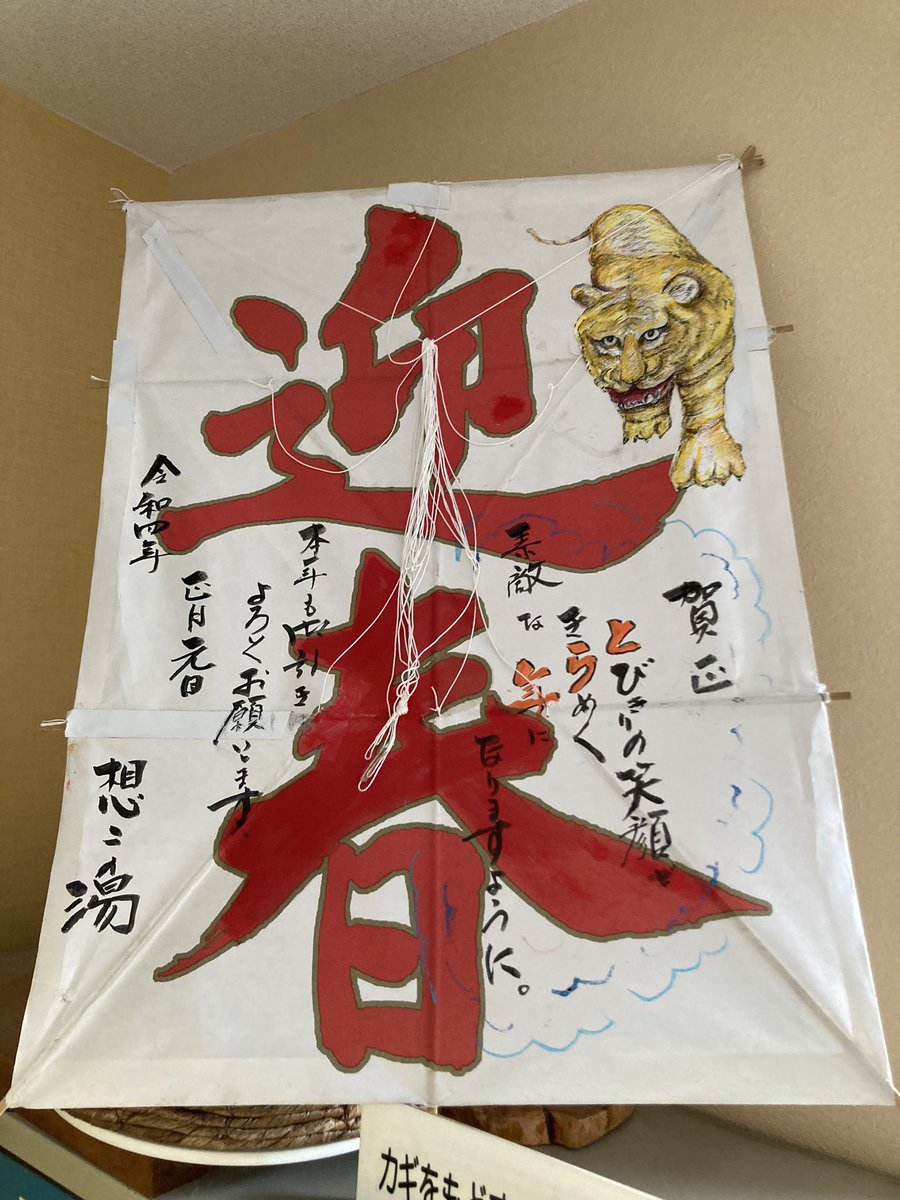 迎春
賀正
とびきりの笑顔と
きらめく
素敵な年に
なりますように。
本年も御引き
よろしくお願いします。
令和四年
正月元日
想いの湯
カギをもど